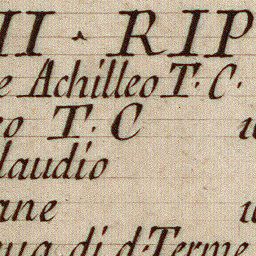 II · RIP
e Achilleo T. C.
ro T. C
laudio
ane
qua di d. Terme